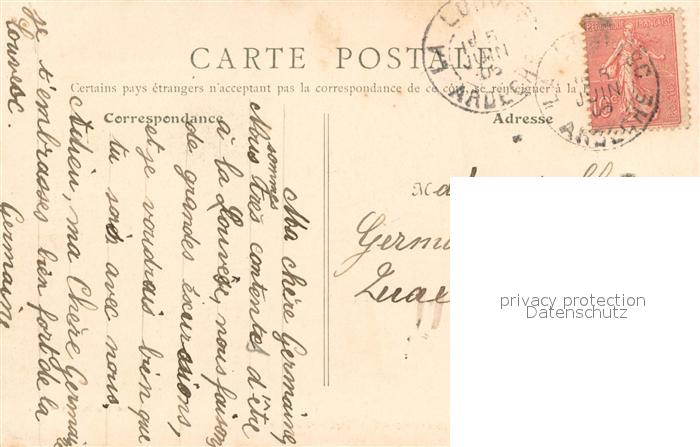 CARTE POSTALE
Certains pays étrangers n'acceptant pas la correspondance de ce côté, se renseigner à la
Correspondance
Adresse
Ma chère Germaine,
Nous sommes très contentes d'être
à la Louvesc, nous faisons
de grandes excursions,
et je voudrais bien que
tu sois avec nous.
Adieu, ma Chère Germaine
je t'embrasses bien fort de la
Louvesc.
Germaine
Mad
Germ
ARDECHE
JUIN
05
RÉPUBLIQUE FRANÇAISE
ARDECHE
JUIN
05
privacy protection
Datenschutz